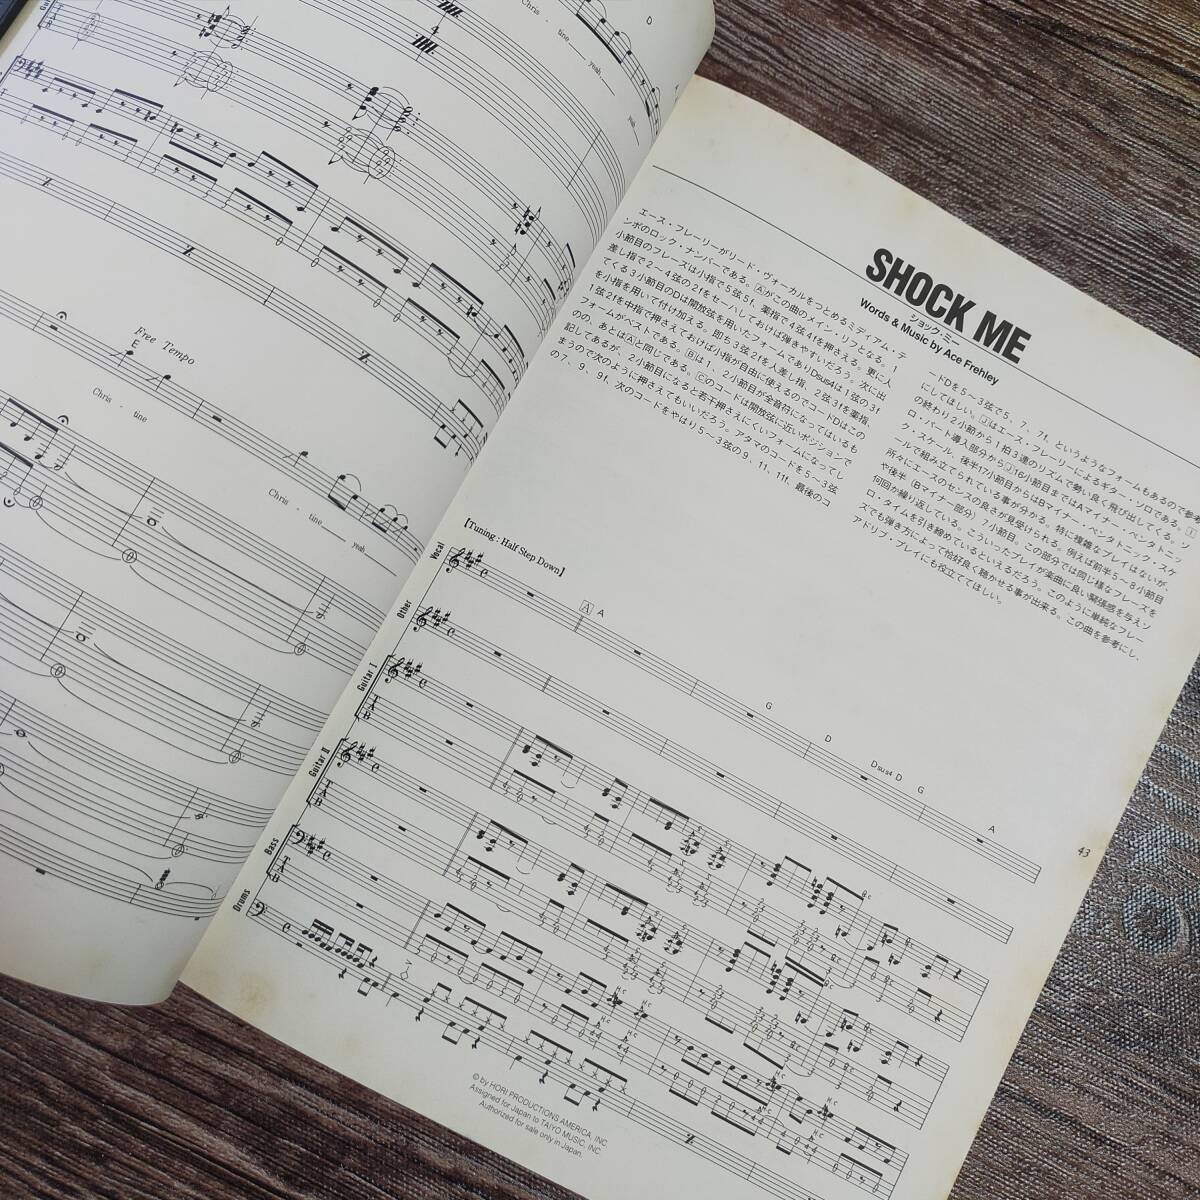 D
Chris - tine yeah yeah
4
Free Tempo
E
Chris - tine
Chris - tine yeah
SHOCK ME
ショック・ミー
Words & Music by Ace Frehley
エース・フレーリーがリード・ヴォーカルをつとめるミディアム・テ
ンポのロック・ナンバーである。Aがこの曲のメイン・リフとなる。1
小節目のフレーズは小指で5弦5f、薬指で4弦4fを押さえる。更に人
差し指で2～4弦の2fをセーハしておけば弾きやすいだろう。次に出
てくる3小節目のDは開放弦を用いたフォームでありDsus4は1弦の3f
を小指を用いて付け加える。即ち3弦2fを人差し指、2弦3fを薬指、
1弦2fを中指で押さえておけば小指が自由に使えるのでコードDはこの
フォームがベストである。Bは1、2小節目が全音符になってはいるも
のの、あとはAと同じである。Cのコードは開放弦に近いポジションで
記してあるが、2小節目になると若干押さえにくいフォームになってし
まうので次のように押さえてもいいだろう。アタマのコードを5～3弦
の7、9、9f、次のコードをやはり5～3弦の9、11、11f、最後のコ
ードDを5～3弦で5、7、7f、というようなフォームもあるので参考
にしてほしい。Jはエース・フレーリーによるギター・ソロである。I
の終わり2小節から1拍3連のリズムで勢い良く飛び出してくる。ソ
ロ・パート導入部分からJ16小節目まではAマイナー・ペンタトニッ
ク・スケール、後半17小節目からはBマイナー・ペンタトニック・スケ
ールで組み立てられている事が分かる。特に複雑なプレイはないが、
所々にエースのセンスの良さが見受けられる。例えば前半5～8小節目
や後半（Bマイナー部分）7小節目、この部分では同じ様なフレーズを
何回か繰り返している。こういったプレイが楽曲に良い緊張感を与えソ
ロ・タイムを引き締めているといえるだろう。このように単純なフレー
ズでも弾き方によって恰好良く聴かせる事が出来る。この曲を参考にし、
アドリブ・プレイにも役立ててほしい。
【Tuning : Half Step Down】
A A G D Dsus4 D G A
Vocal
Other
Guitar I
Guitar II
Bass
Drums
43
© by HORI PRODUCTIONS AMERICA, INC.
Assigned for Japan to TAIYO MUSIC, INC.
Authorized for sale only in Japan.